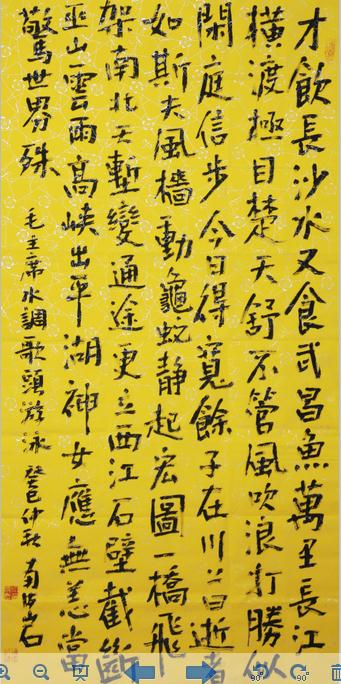 才飲長沙水又食武昌魚萬里長江
橫渡極目楚天舒不管風吹浪打勝似
閑庭信步今日得寬餘子在川上曰逝者
如斯夫風檣動龜蛇靜起宏圖一橋飛
架南北天塹變通途更立西江石壁截斷
巫山雲雨高峽出平湖神女應無恙當
驚世界殊
毛主席水調歌頭游泳 癸巳仲秋 南
90° 90°